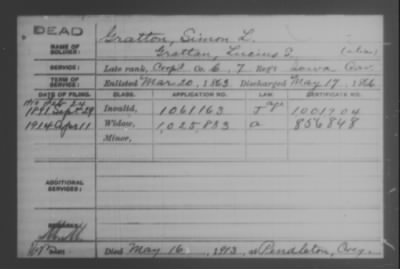 DEAD
NAME OF SOLDIER: Gratton, Simon L.
Grattan, Lucius S. (alias)
SERVICE: Late rank, Corpl Co. G, 7 Reg't Iowa Cav.
TERM OF SERVICE: Enlisted Mar. 20, 1863 Discharged May 17, 1866
DATE OF FILING. CLASS. APPLICATION NO. LAW. CERTIFICATE NO.
1910 Feb 24
1891 Sept 29 Invalid, 1061163 J age 1001704
1914 Apr 11 Widow, 1,025,853 a 856848
Minor,
ADDITIONAL SERVICES:
Died May 16, 1913, at Pendleton, Oreg.